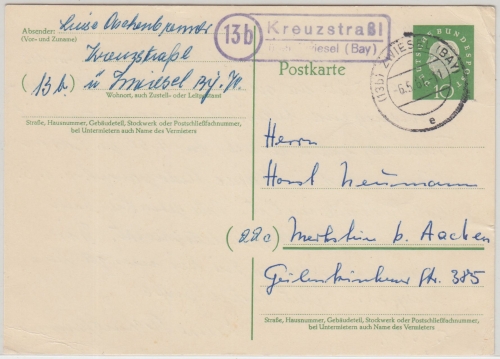 Absender:
(Vor- und Zuname)
Luise
Kreuzstraßl
(13b) ü Zwiesel
Wohnort, auch Zustell- oder Leitpostamt
Straße, Hausnummer, Gebäudeteil, Stockwerk oder Postschließfachnummer,
bei Untermietern auch Name des Vermieters
13b
Kreuzstraßl
Zwiesel (Bay)
Postkarte
(13b) ZWIESEL (BAY)
-6.5.
e
DEUTSCHE BUNDESPOST
10
Herrn
Horst Neumann
(22c) Merkstein b. Aachen
Geilenkirchener Str. 385
Straße, Hausnummer, Gebäudeteil, Stockwerk oder Postschließfachnummer,
bei Untermietern auch Name des Vermieters